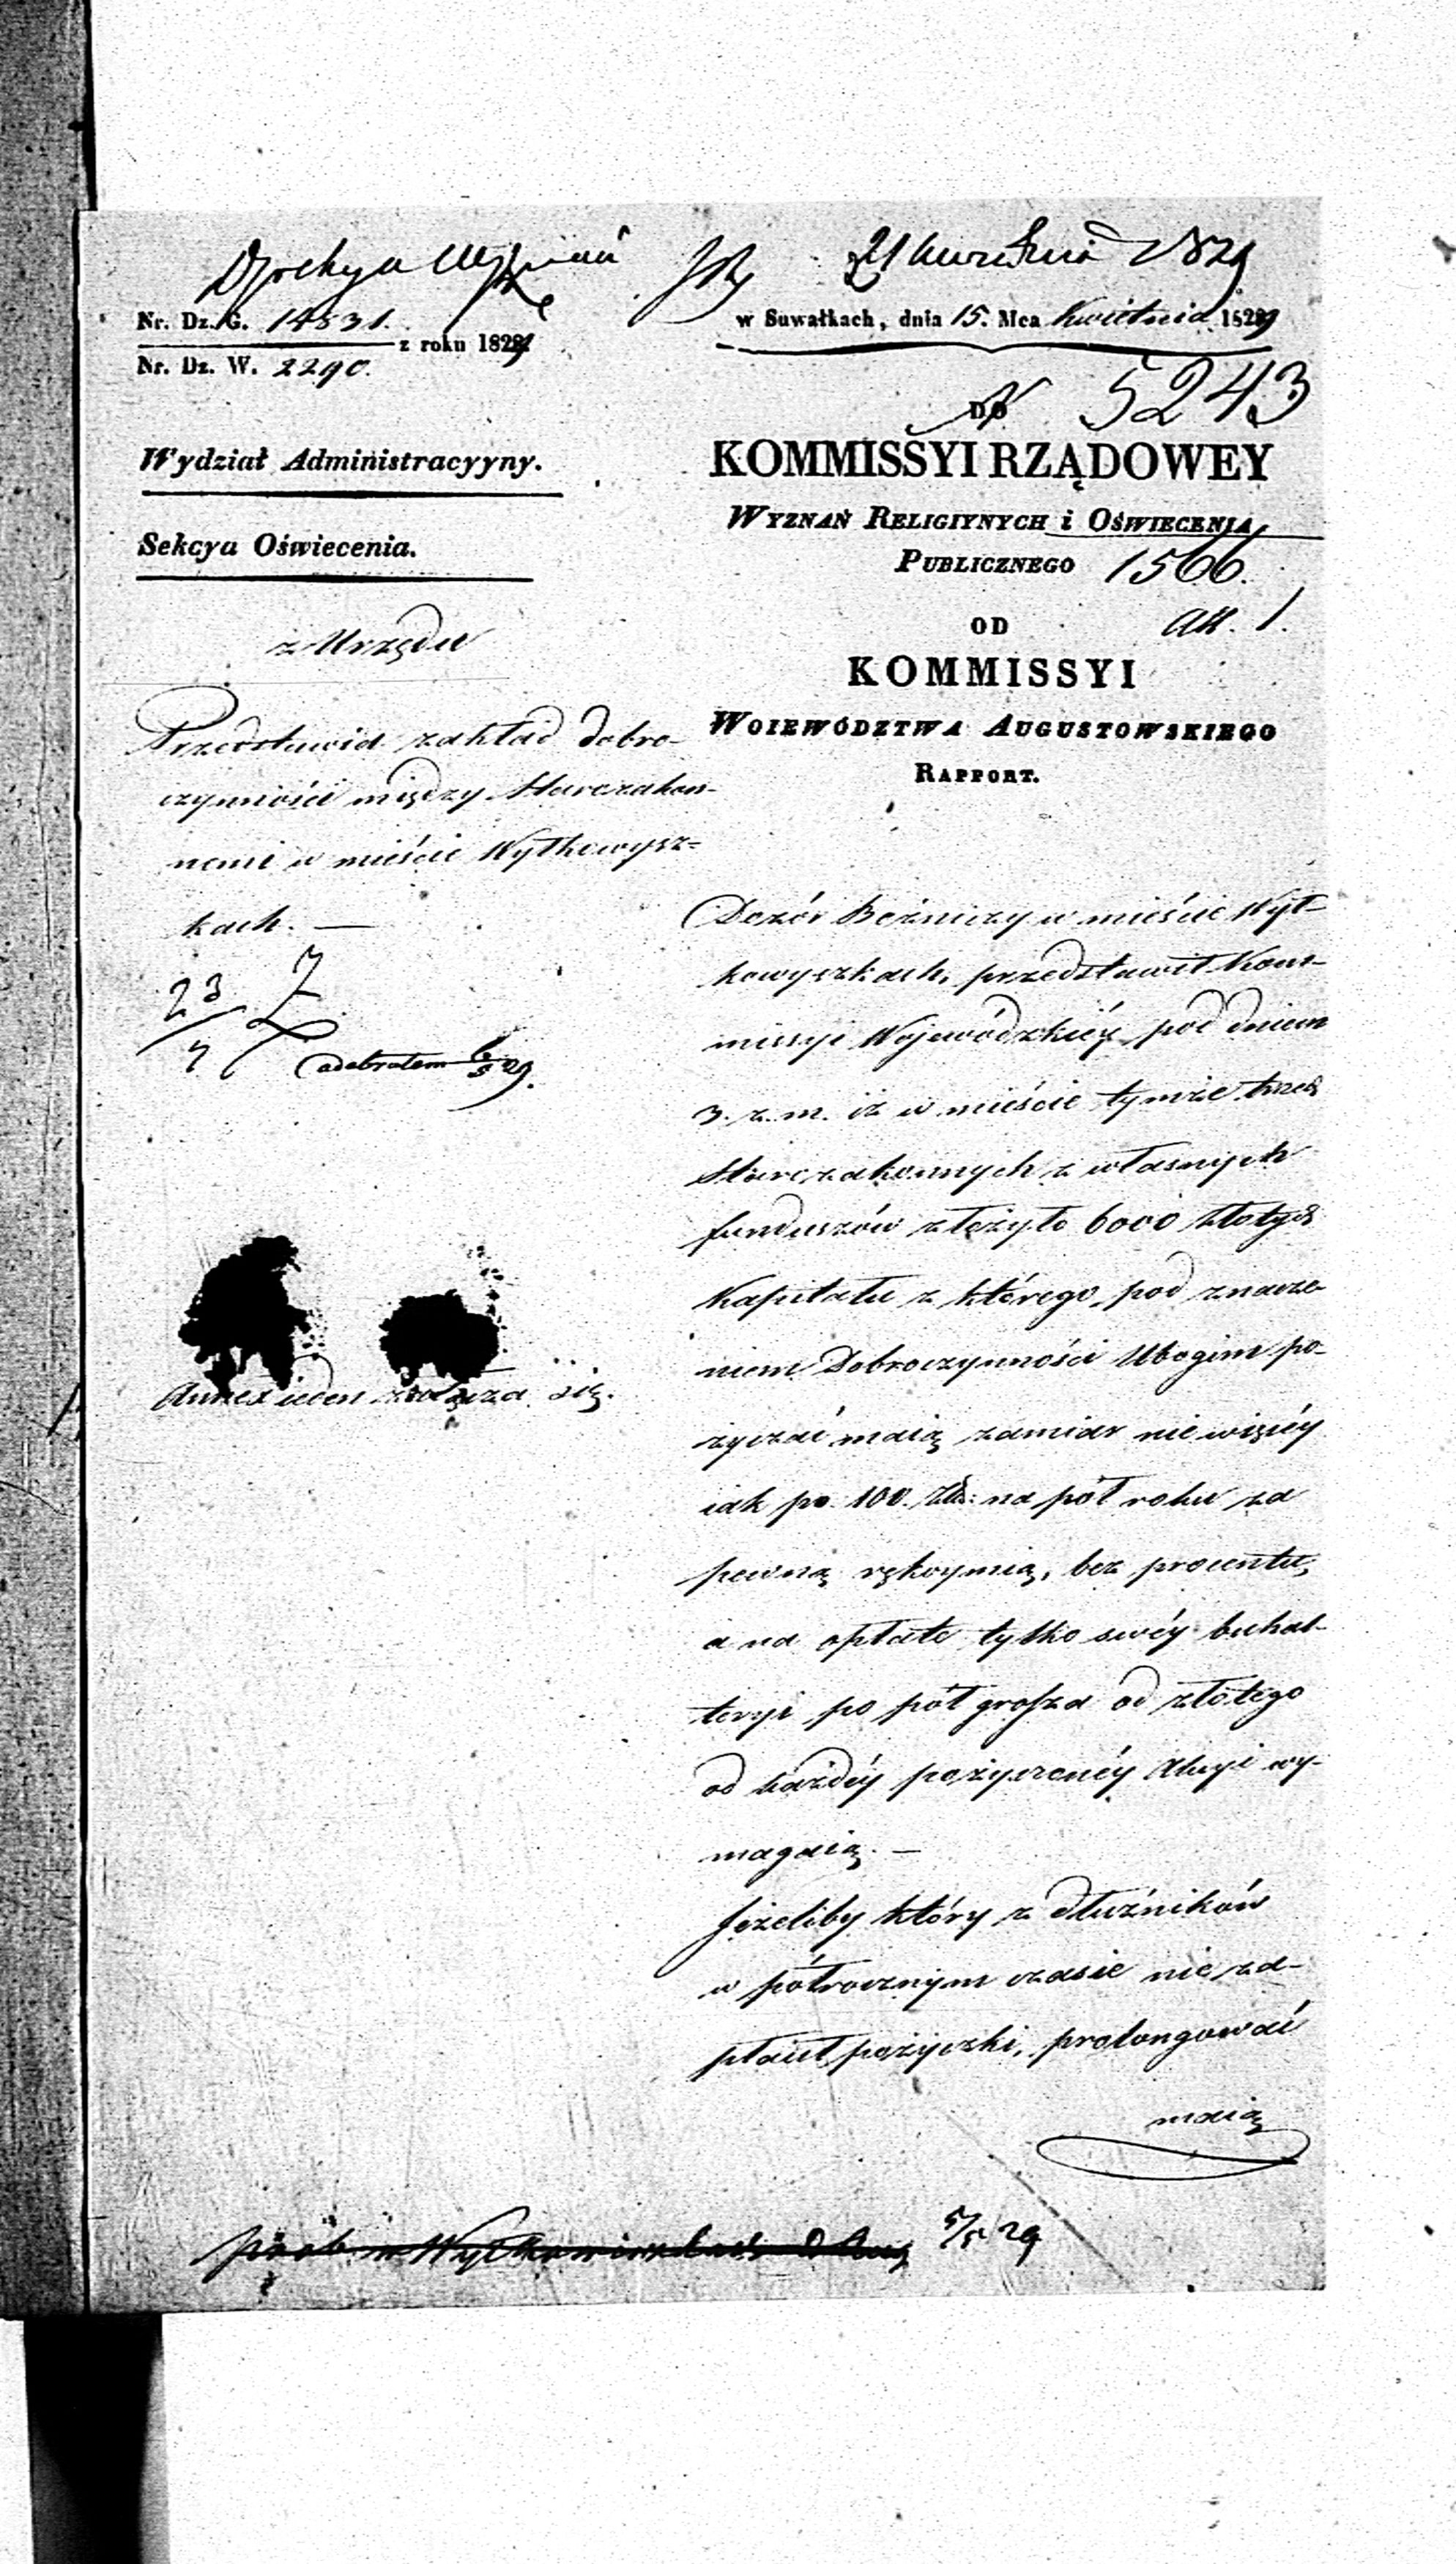 21 1829
Nr. Dz. G. 14831.
z roku 1829
Nr. Dz. W. 2290.
w Suwałkach, dnia 15. Mca Kwietnia 1829
N 5243
DO
KOMMISSYI RZĄDOWEY
WYZNAŃ RELIGIYNYCH i OŚWIECENIA
PUBLICZNEGO 1566.
OD
KOMMISSYI
WOIEWÓDZTWA AUGUSTOWSKIEGO
RAPPORT.
Wydział Administracyyny.
Sekcya Oświecenia.
z Urzędu
Przedstawia zakład dobro-
czynności między Starozakon-
nemi w mieście Wyłkowysz-
kach. —
23 7
odebrałem 29.
Annex ieden załącza się.
Dozór Bożniczy w mieście Wył-
kowyszkach, przedstawił Kom-
missyi Wojewódzkiéy pod dniem
3. z. m. iż w mieście tymże trzech
Starozakonnych z własnych
funduszów złożyło 6000 złotych
Kapitału z którego, pod znacze-
niem Dobroczynności Ubogim po-
życzać maią zamiar nie więcéy
iak po 100. Złt: na pół roku za
pewną rękoymią, bez procentu,
a na opłatę tylko swéy buhal-
teryi po pół grosza od złotego
od każdéy pożyczonéy wy-
magaią. —
Jeżeliby który z dłużników
w półrocznym czasie nie za-
płacił pożyczki, prolongować
maią
5/5 29